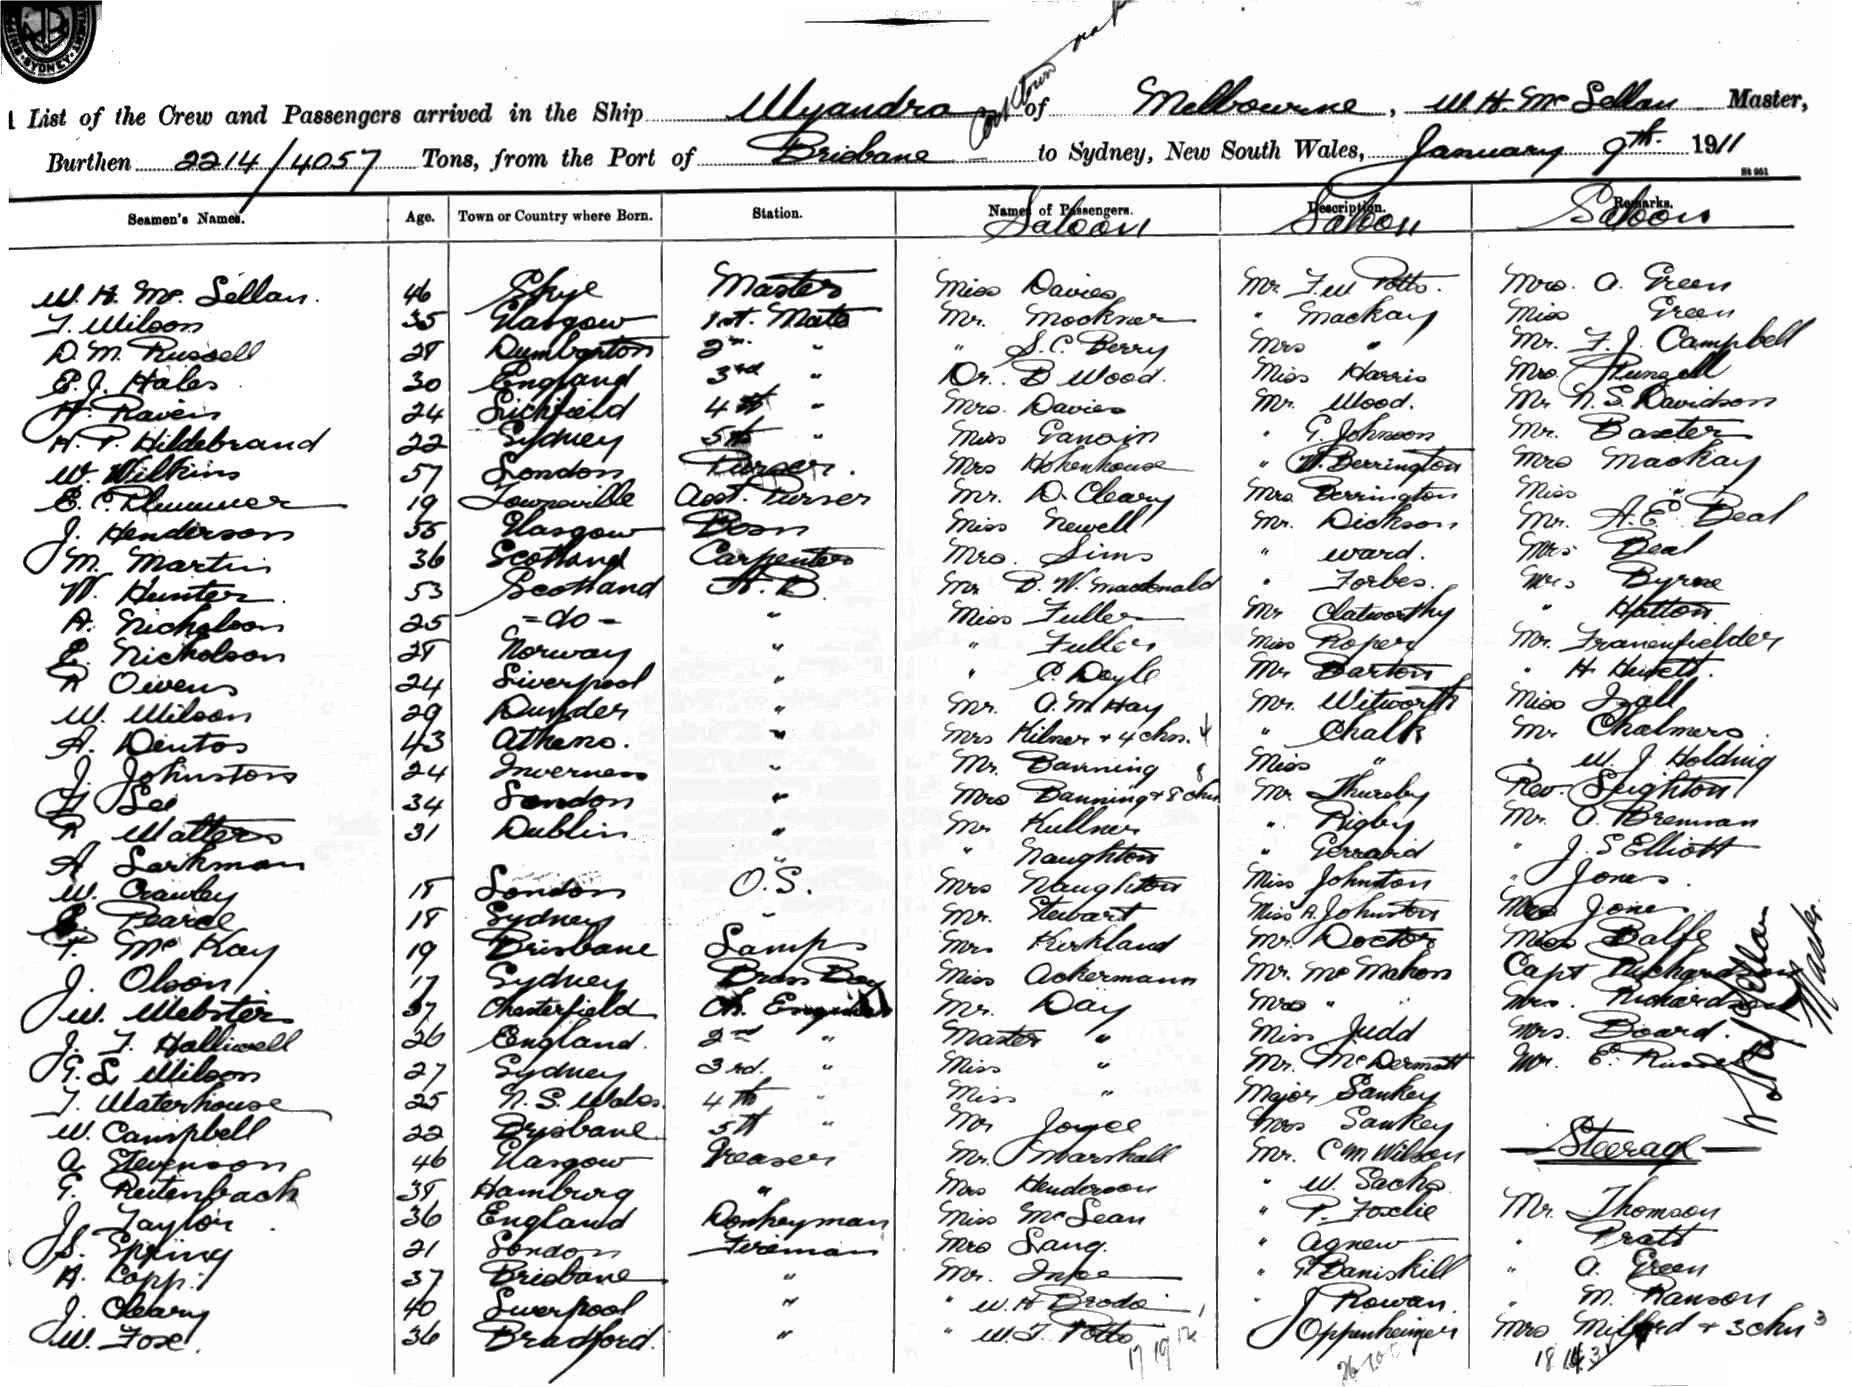 SYDNEY
List of the Crew and Passengers arrived in the Ship Wyandra of Melbourne, W. H. McLellan Master,
Burthen 2214/4057 Tons, from the Port of Brisbane to Sydney, New South Wales, January 9th. 1911
St 951
Seamen's Names. Age. Town or Country where Born. Station. Names of Passengers. Description. Remarks.
Saloon Saloon Saloon
W. H. Mc. Lellan. 46 Skye Master Miss Davies Mr. F. W Potts. Mrs. A. Green
T. Wilson 35 Glasgow 1st. Mate Mr. Mockner " Mackay Miss Green
D. M. Russell 28 Dumbarton 2nd " " S. C. Berry Mrs " Mr. F. J. Campbell
E. J. Hales 30 England 3rd " Dr. B Wood. Miss Harris Mrs.
H. Raven 24 Lichfield 4th " Mrs. Davies Mr. Wood. Mr N. S. Davidson
H. P. Hildebrand 22 Sydney 5th " Miss " G. Johnson Mr. Baxter
W. Wilkins 57 London Purser. Mrs Hohenhouse " W. Berrington Mrs Mackay
E. C. Plummer 19 Townsville Asst. Purser Mr. D. Cleary Mrs. Berrington Miss "
J. Henderson 55 Glasgow Bosn Miss Newell Mr. Dickson Mr. A. E. Beal
M. Martin 36 Scotland Carpenter Mrs. Sims " Ward. Mrs Beal
W. Hunter 53 Scotland A. B. Mr. B. W. Macdonald " Forbes. Mrs Byrne
A. Nicholson 25 - do - " Miss Fuller Mr Clatworthy " Hatton
E. Nicholson 28 Norway " " Fuller Miss Roper Mr.
R Owens 24 Liverpool " " C. Doyle Mr Barton " H.
W. Wilson 29 Dundee " Mr. A. M. Hay Mr. Witworth Miss Izall
A. Dentos 43 Athens. " Mrs Kilner + 4 chn. 4 " Chalk Mr Chalmers
J. Johnston 24 Inverness " Mr. Banning 8 Miss " " W. J. Holding
Lee 34 London " Mrs Banning + 8 chn Mr. Thursby Rev. Leighton
R Watters 31 Dublin " Mr Kullner " Rigby Mr. O. Brennan
A Larkman " " Naughton " Gerrard " J. S Elliott
W. Crawley 18 London O. S. Mrs Naughton Miss Johnston " Jones.
Pearce 18 Sydney " Mr. Stewart Miss A. Johnston Mrs Jones
T. Mc Kay 19 Brisbane Lamps Mrs Kirkland Mr. Doctor Miss Balfe
J. Olson 17 Sydney Brass Boy Miss Ackermann Mr. McMahon Capt Richardson
W. Webster 37 Chesterfield Ch. Engineer Mr. Day Mrs " " Mrs. Richardson
J. T. Halliwell 26 England. 2nd " Master " Miss Judd Mrs. Board.
G. L. Wilson 27 Sydney 3rd. " Miss " Mr. McDermott Mr. E. Russell
T. Waterhouse 25 N. S. Wales. 4th " Miss " Major Sankey
W. Campbell 22 Brisbane 5th " Mr Joyce Mrs Sankey
A. Stevenson 46 Glasgow Greaser Mr. Marshall Mr. C M Wilson Steerage
G. Reitenbach 38 Hamburg " Mrs Henderson " W. Sachs
J. Taylor. 36 England Donkeyman Miss McLean " P. Foxlie Mr. Thomson
S. Spring 21 London Fireman Mrs Lang. " Agnew " Pratt
A. Copp. 37 Brisbane " Mr. " G. Baniskill " A. Green
J. Cleary 40 Liverpool " " W. H " J Rowan. " M. Ranson
W. Fox. 36 Bradford. " " W. T. Potts Oppenheimer Mrs Milford + 3 chn 3
W. H. McLellan
Master